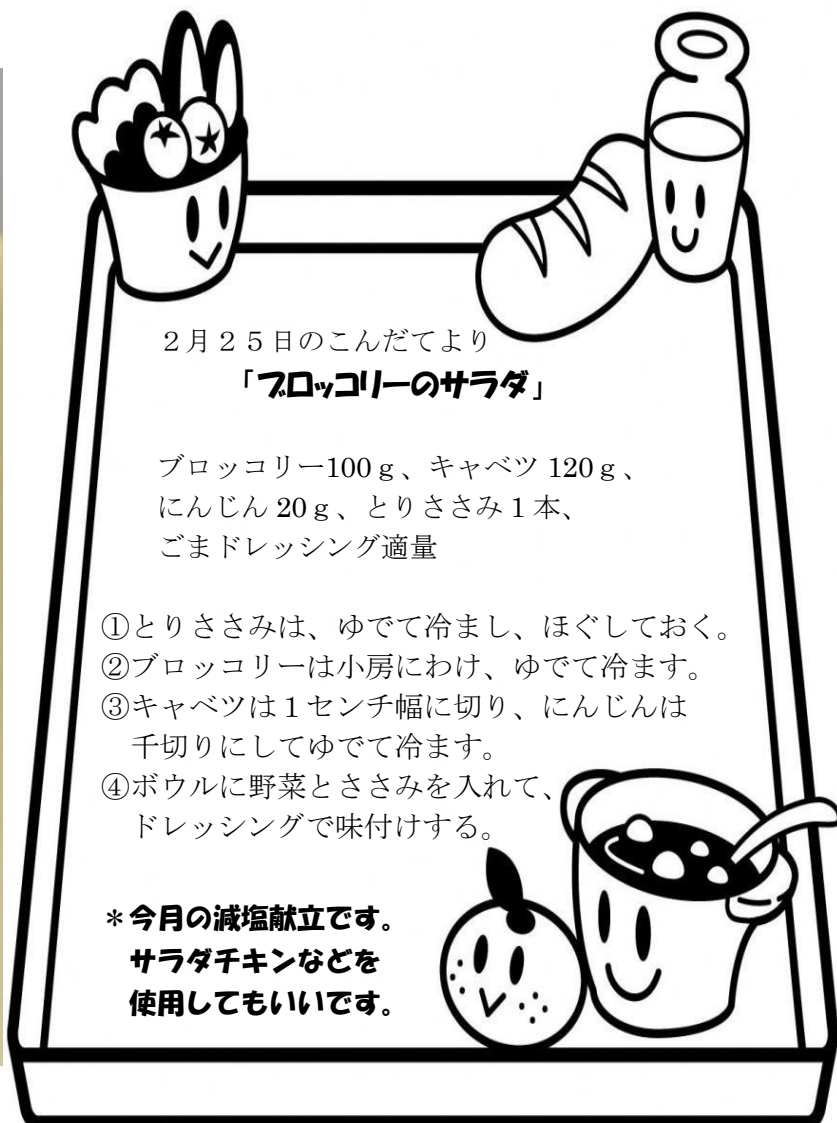 ２月２５日のこんだてより
「ブロッコリーのサラダ」
ブロッコリー100ｇ、キャベツ 120ｇ、
にんじん 20ｇ、とりささみ１本、
ごまドレッシング適量
①とりささみは、ゆでて冷まし、ほぐしておく。
②ブロッコリーは小房にわけ、ゆでて冷ます。
③キャベツは１センチ幅に切り、にんじんは
千切りにしてゆでて冷ます。
④ボウルに野菜とささみを入れて、
ドレッシングで味付けする。
＊今月の減塩献立です。
サラダチキンなどを
使用してもいいです。